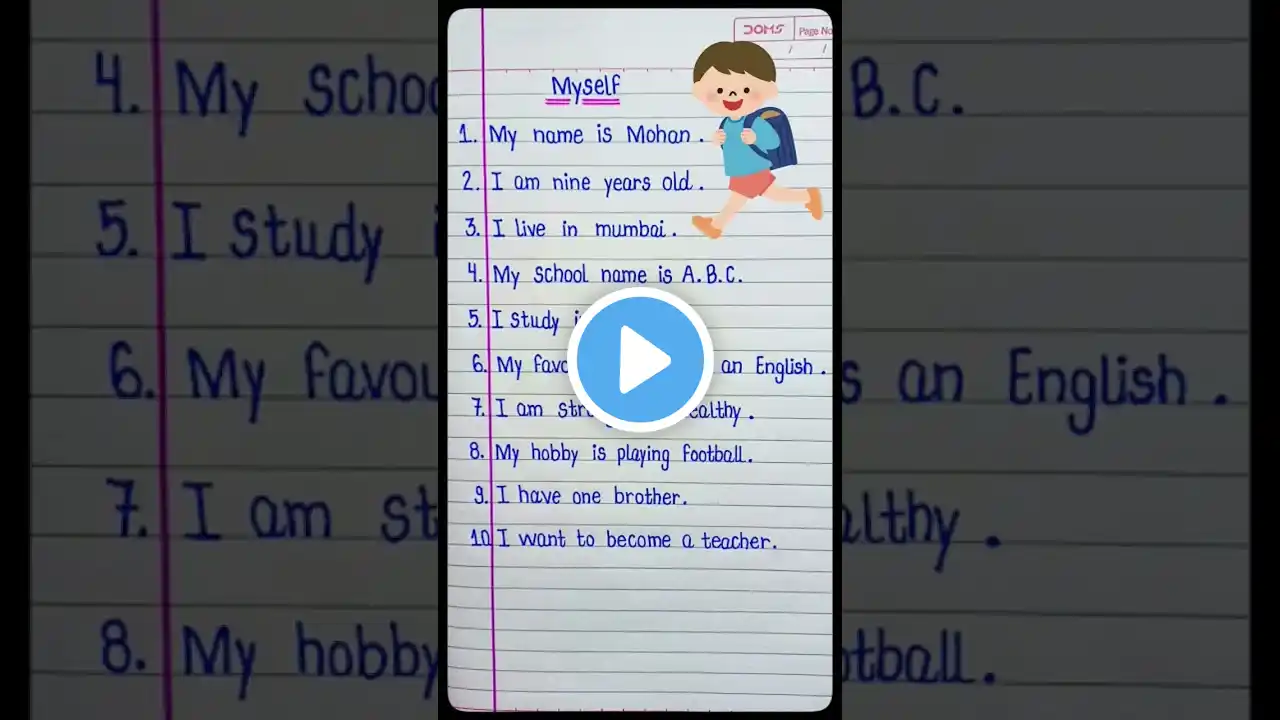 DOMS Page No
/ /
Myself
1. My name is Mohan.
2. I am nine years old.
3. I live in mumbai.
4. My school name is A.B.C.
5. I study
6. My an English.
7. I am
8. My hobby is playing football.
9. I have one brother.
10 I want to become a teacher.